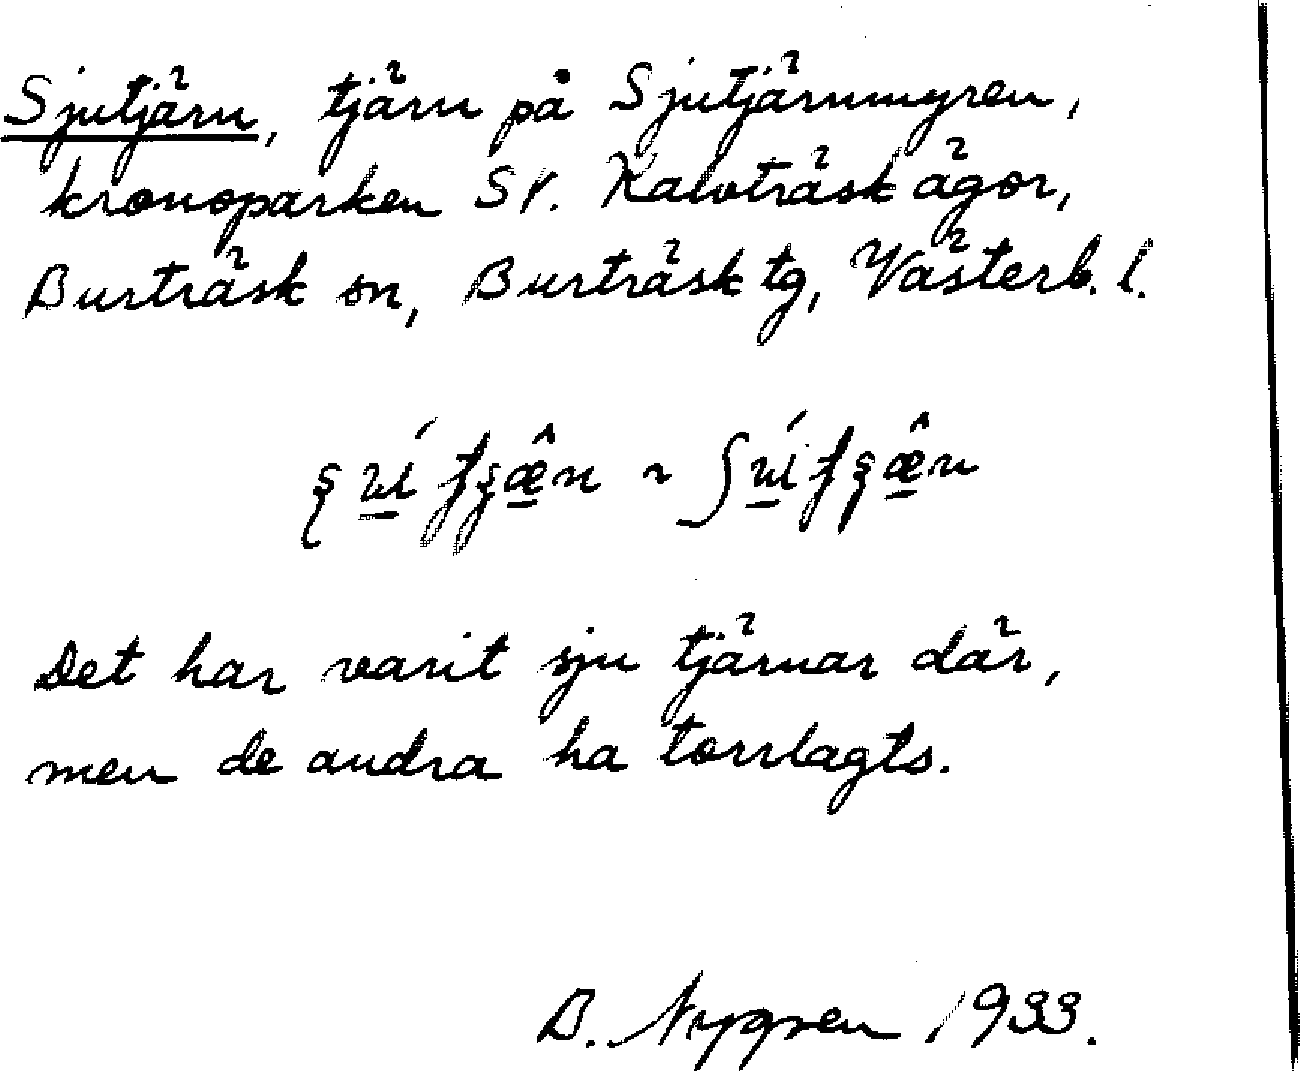 Sjutjärn, tjärn på Sjutjärnmyren,
kronoparken SV. Kalvträsk ägor,
Burträsk sn, Burträsk tg, Västerb. l.
Det har varit sju tjärnar där,
men de andra ha torrlagts.
B. Nygren 1933.